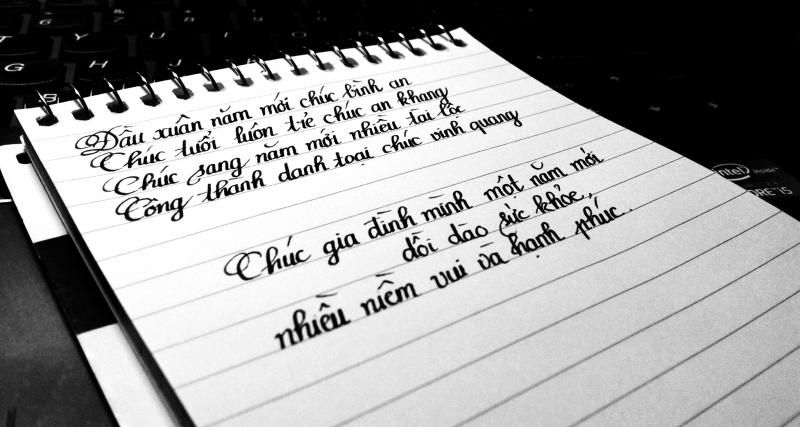 Đầu xuân năm mới chúc bình an
Chúc tuổi luôn trẻ chúc an khang
Chúc sang năm mới nhiều tài lộc
Công thành danh toại chúc vinh quang
Chúc gia đình mình một năm mới
dồi dào sức khỏe,
nhiều niềm vui và hạnh phúc.
T Y U
G H
B
intel inside
CORE i5